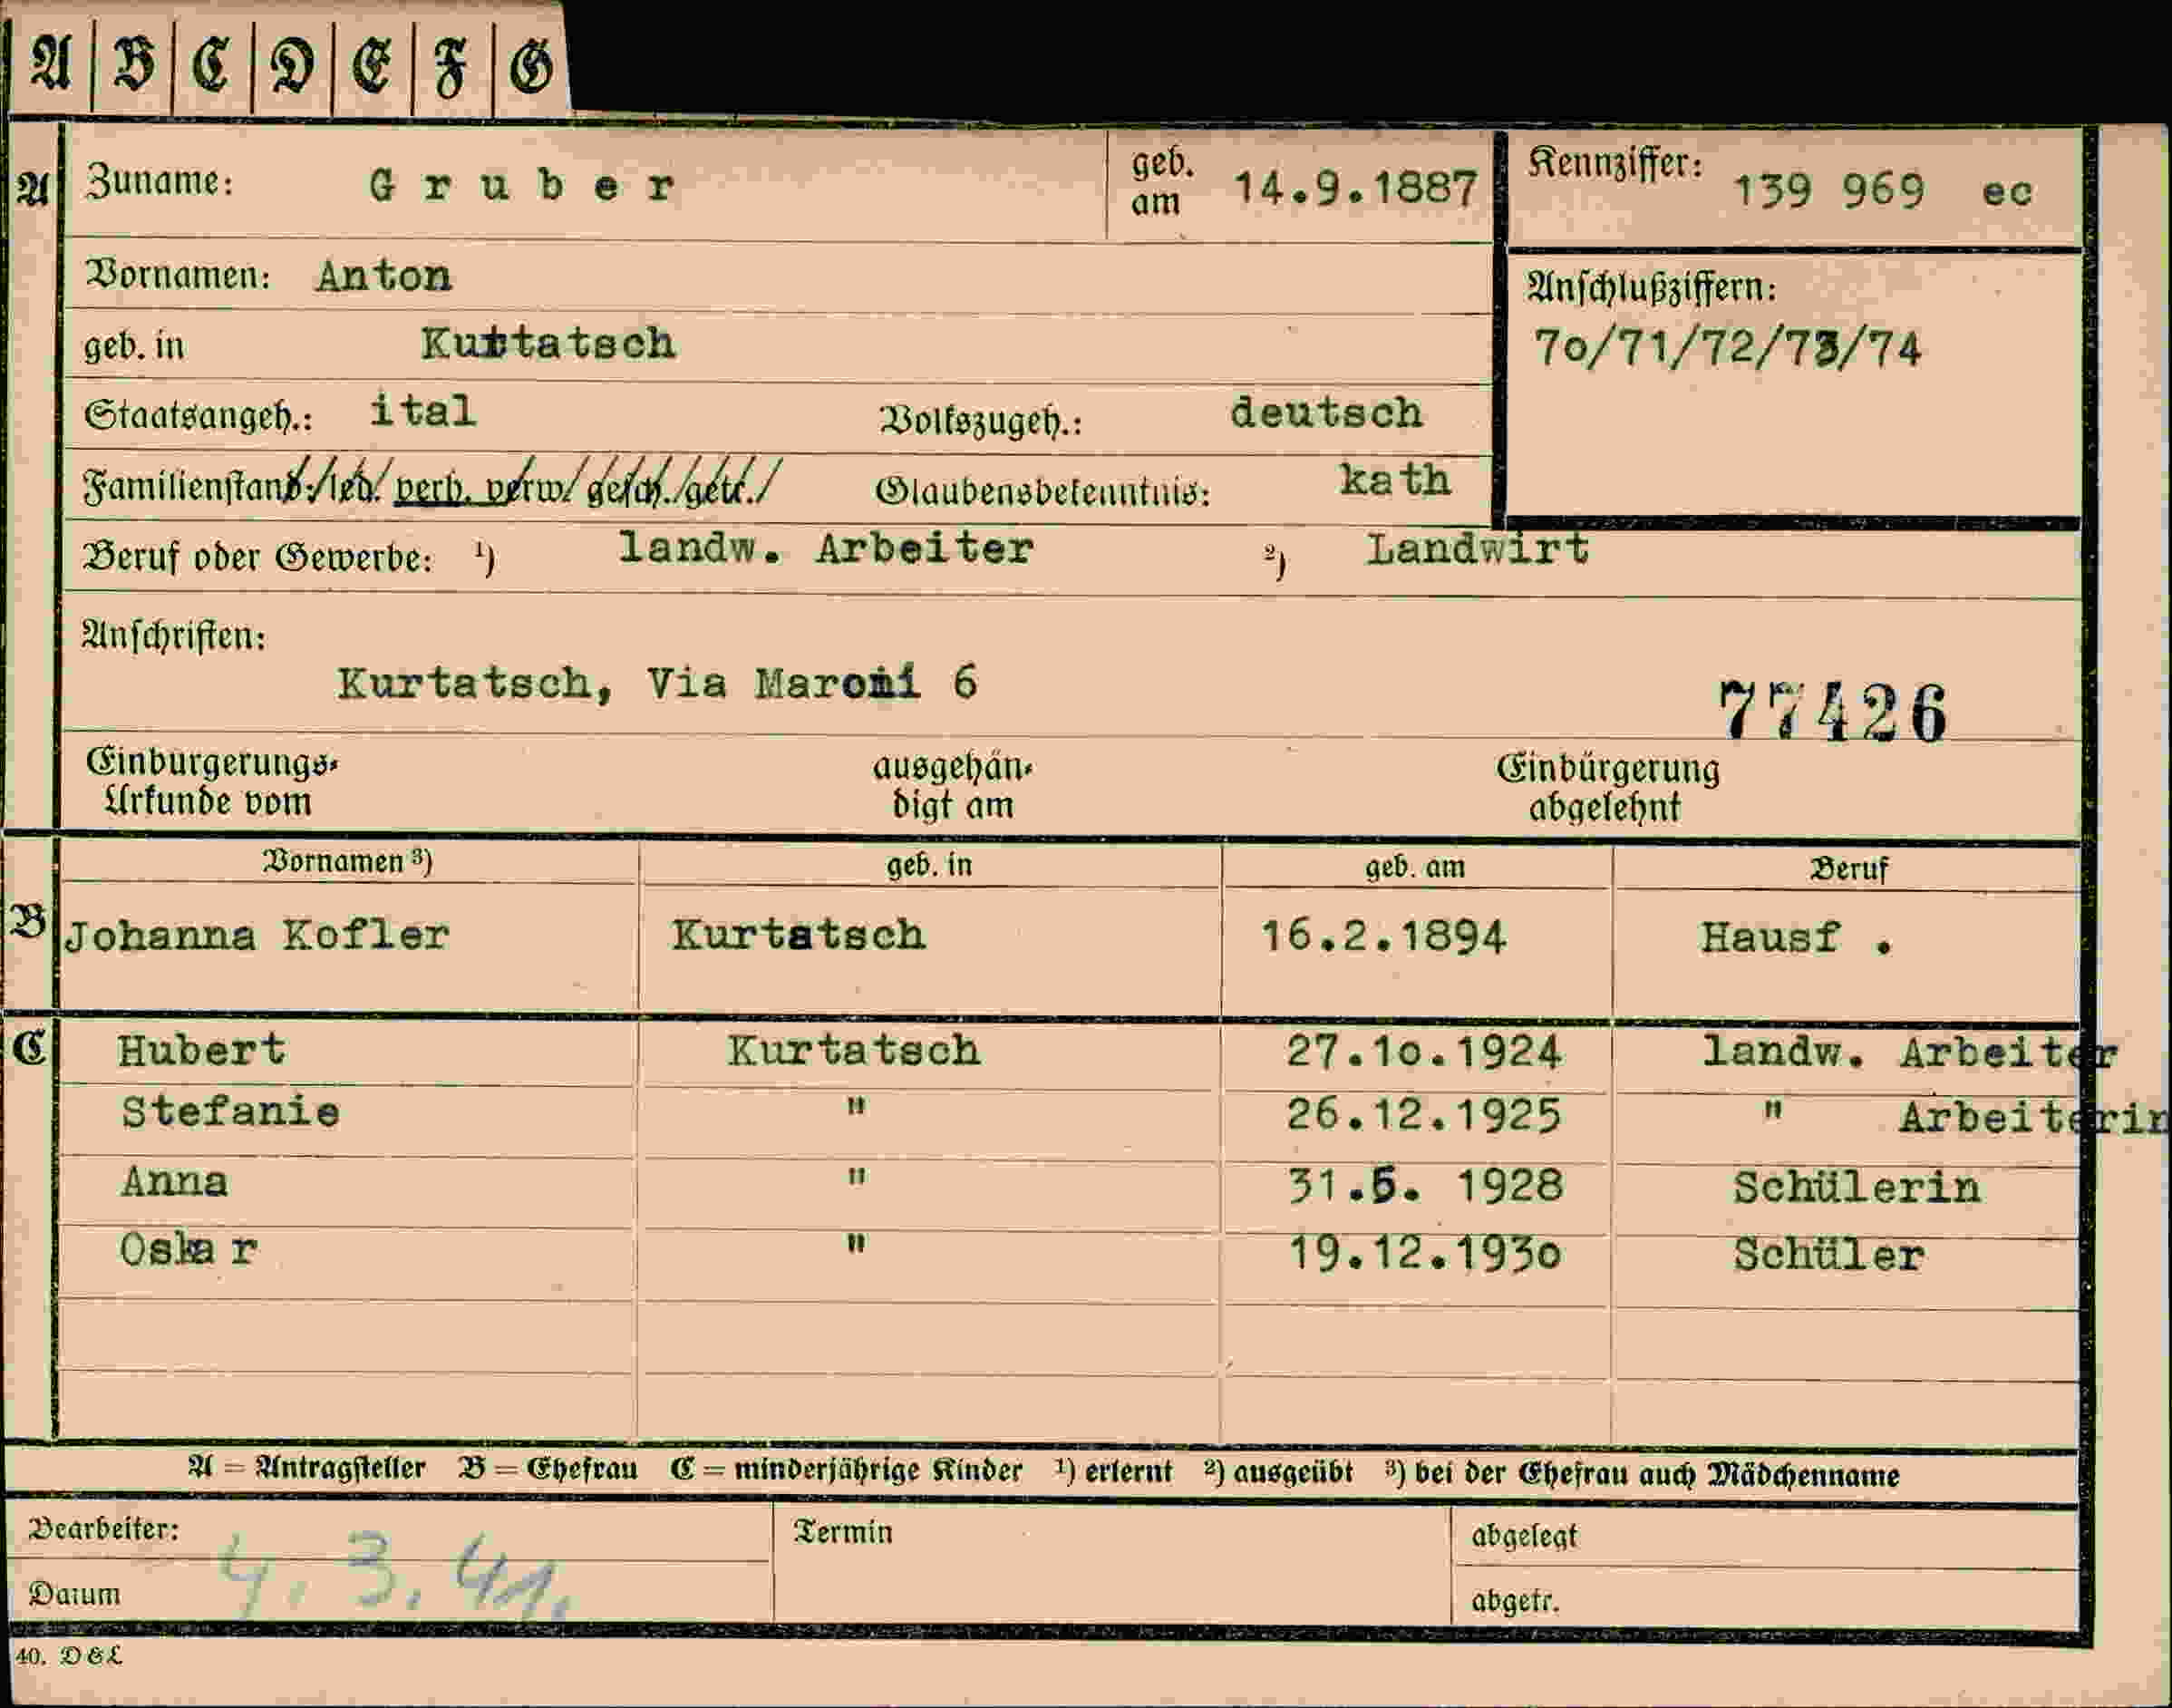 A B C D E F G
A Zuname: Gruber geb. am 14.9.1887 Kennziffer: 139 969 ec
Vornamen: Anton Anschlußziffern:
geb. in Kurtatsch 7o/71/72/73/74
Staatsangeh.: ital Volkszugeh.: deutsch
Familienstand: led. verh. verw. gesch. getr. Glaubensbekenntnis: kath
Beruf oder Gewerbe: ¹) landw. Arbeiter ²) Landwirt
Anschriften:
Kurtatsch, Via Maroni 6
77426
Einbürgerungs- ausgehän- Einbürgerung
Urkunde vom digt am abgelehnt
Vornamen ³) geb. in geb. am Beruf
B Johanna Kofler Kurtatsch 16.2.1894 Hausf .
C Hubert Kurtatsch 27.1o.1924 landw. Arbeiter
Stefanie " 26.12.1925 " Arbeiterin
Anna " 31.5. 1928 Schülerin
Oskar " 19.12.193o Schüler
A = Antragsteller B = Ehefrau C = minderjährige Kinder ¹) erlernt ²) ausgeübt ³) bei der Ehefrau auch Mädchenname
Bearbeiter: Termin abgelegt
Datum 4. 3. 41. abgetr.
40. D & L